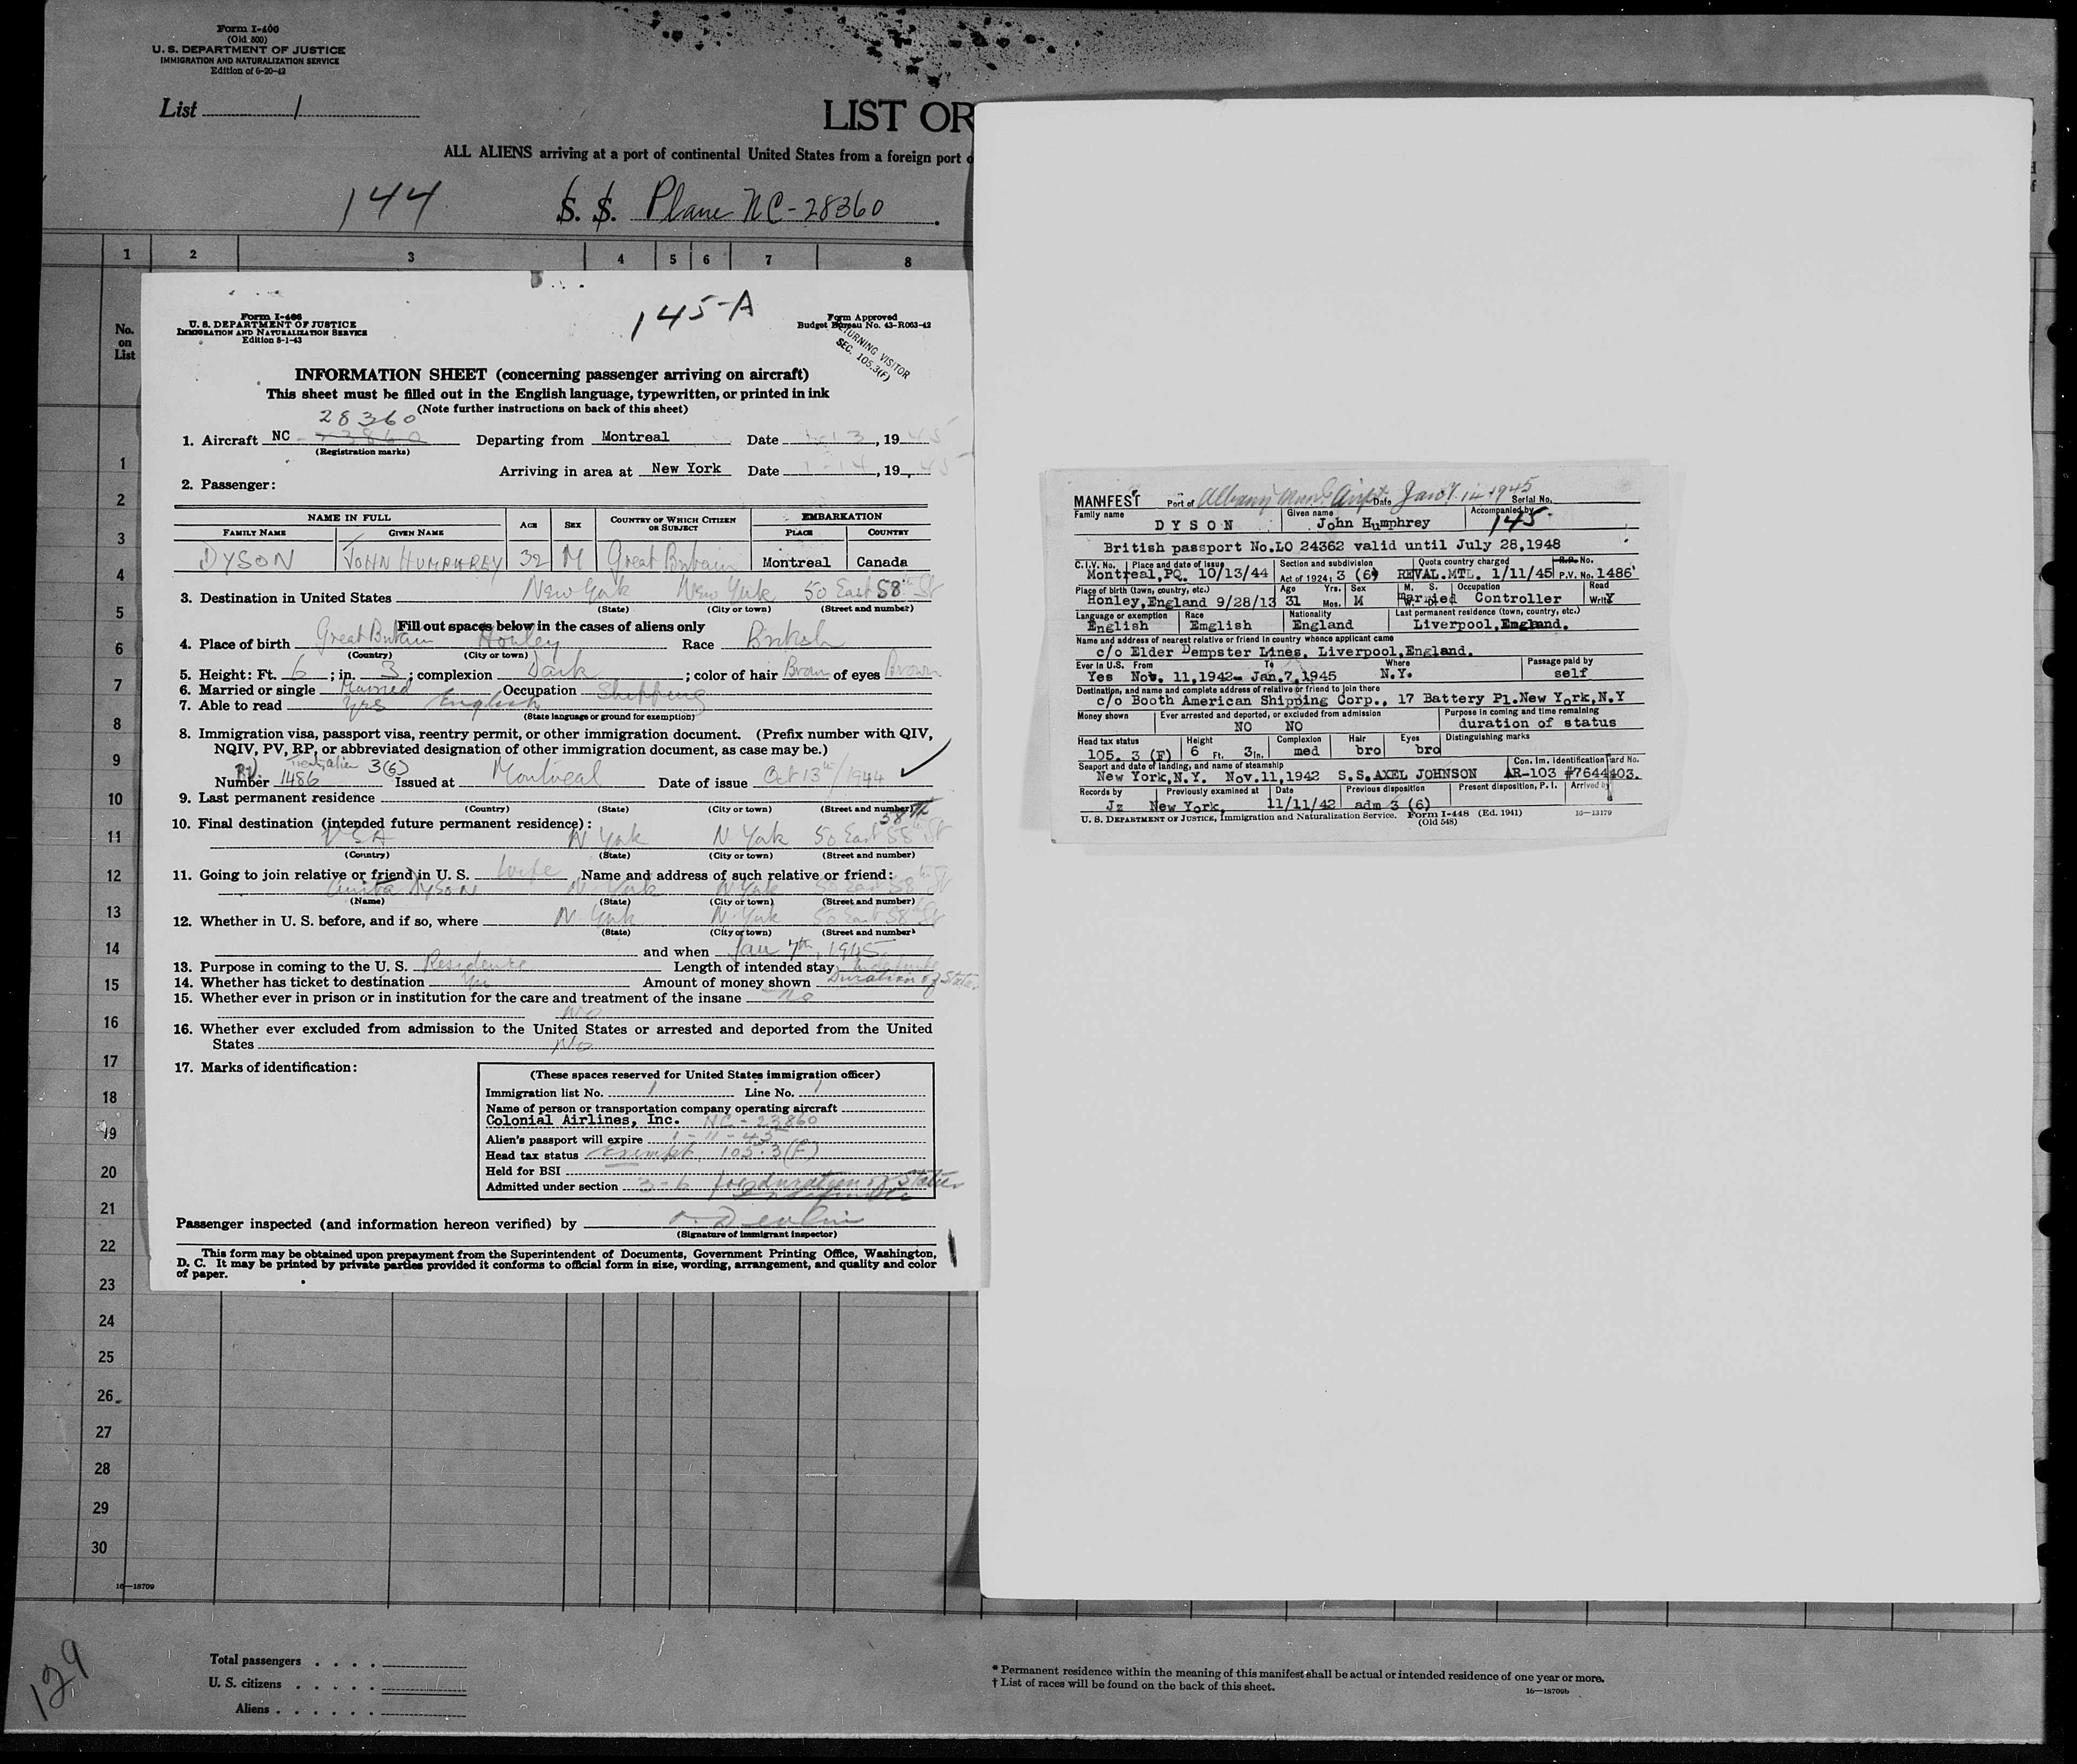 Form I-400
(Old 500)
U. S. DEPARTMENT OF JUSTICE
IMMIGRATION AND NATURALIZATION SERVICE
Edition of 6-20-42
List 1
LIST OR
ALL ALIENS arriving at a port of continental United States from a foreign port o
144 S. S. Plane NC-28360
1 2 3 4 5 6 7 8
No. on List
1
2
3
4
5
6
7
8
9
10
11
12
13
14
15
16
17
18
19
20
21
22
23
24
25
26
27
28
29
30
16—18709
Total passengers . . . .
U. S. citizens . . . . .
Aliens . . . . . .
129
* Permanent residence within the meaning of this manifest shall be actual or intended residence of one year or more.
† List of races will be found on the back of this sheet.
16—18709b
Form I-466
U. S. DEPARTMENT OF JUSTICE
IMMIGRATION AND NATURALIZATION SERVICE
Edition 8-1-43
145-A
Form Approved
Budget Bureau No. 43-R063-42
RETURNING VISITOR
SEC. 105.3(F)
INFORMATION SHEET (concerning passenger arriving on aircraft)
This sheet must be filled out in the English language, typewritten, or printed in ink
(Note further instructions on back of this sheet)
28360
1. Aircraft NC 23860 Departing from Montreal Date 1-13, 1945
(Registration marks)
Arriving in area at New York Date 1-14, 1945
2. Passenger:
NAME IN FULL AGE SEX COUNTRY OF WHICH CITIZEN OR SUBJECT EMBARKATION
FAMILY NAME GIVEN NAME PLACE COUNTRY
DYSON JOHN HUMPHREY 32 M Great Britain Montreal Canada
3. Destination in United States New York New York 50 East 58th St
(State) (City or town) (Street and number)
Fill out spaces below in the cases of aliens only
4. Place of birth Great Britain Honley Race British
(Country) (City or town)
5. Height: Ft. 6; in. 3; complexion Dark; color of hair Brown of eyes Brown
6. Married or single Married Occupation Shipping
7. Able to read Yes English
(State language or ground for exemption)
8. Immigration visa, passport visa, reentry permit, or other immigration document. (Prefix number with QIV,
NQIV, PV, RP, or abbreviated designation of other immigration document, as case may be.)
3(6)
Number 1486 Issued at Montreal Date of issue Oct 13th/1944
9. Last permanent residence
(Country) (State) (City or town) (Street and number)
58th
10. Final destination (intended future permanent residence):
USA N York N York 50 East 58th St
(Country) (State) (City or town) (Street and number)
11. Going to join relative or friend in U. S. Wife Name and address of such relative or friend:
Anita Dyson N York N York 50 East 58th St
(Name) (State) (City or town) (Street and number)
12. Whether in U. S. before, and if so, where N York N York 50 East 58th St
(State) (City or town) (Street and number)
and when Jan 7th, 1945
13. Purpose in coming to the U. S. Residence Length of intended stay Indefinite
Duration of Status
14. Whether has ticket to destination Yes Amount of money shown
15. Whether ever in prison or in institution for the care and treatment of the insane No
No
16. Whether ever excluded from admission to the United States or arrested and deported from the United
States No
17. Marks of identification:
(These spaces reserved for United States immigration officer)
Immigration list No. 1 Line No. 1
Name of person or transportation company operating aircraft
Colonial Airlines, Inc. NC-23860
Alien's passport will expire 1-11-45
Head tax status Exempt 105.3(F)
Held for BSI
Admitted under section 3-6 for duration of Status
Passenger inspected (and information hereon verified) by
(Signature of immigrant inspector)
This form may be obtained upon prepayment from the Superintendent of Documents, Government Printing Office, Washington,
D. C. It may be printed by private parties provided it conforms to official form in size, wording, arrangement, and quality and color
of paper.
MANIFEST Port of Albany Date Jan. 14 1945 Serial No.
Family name Given name Accompanied by
DYSON John Humphrey 145
British passport No.LO 24362 valid until July 28,1948
C.I.V. No. Place and date of issue Section and subdivision Quota country charged R.P. No.
Montreal,PQ. 10/13/44 Act of 1924: 3 (6) REVAL.MTL. 1/11/45 P.V. No. 1486
Place of birth (town, country, etc.) Age Yrs. Sex M. S. Occupation Read
Honley,England 9/28/13 31 Mos. M Married W. D. Controller Write Y
Language or exemption Race Nationality Last permanent residence (town, country, etc.)
English Emglish England Liverpool,England.
Name and address of nearest relative or friend in country whence applicant came
c/o Elder Dempster Lines, Liverpool,England.
Ever in U.S. From To Where Passage paid by
Yes Nov. 11,1942- Jan.7,1945 N.Y. self
Destination, and name and complete address of relative or friend to join there
c/o Booth American Shipping Corp., 17 Battery Pl.New York,N.Y
Money shown Ever arrested and deported, or excluded from admission Purpose in coming and time remaining
NO NO duration of status
Head tax status Height Complexion Hair Eyes Distinguishing marks
105. 3 (F) 6 Ft. 3 In. med bro bro
Seaport and date of landing, and name of steamship Con. Im. Identification Card No.
New York,N.Y. Nov.11,1942 S.S.AXEL JOHNSON AR-103 #7644403.
Records by Previously examined at Date Previous disposition Present disposition, P. I. Arrived by
Jz New York, 11/11/42 adm 3 (6)
U. S. DEPARTMENT OF JUSTICE, Immigration and Naturalization Service. Form I-448 (Ed. 1941) 16—13179
(Old 548)